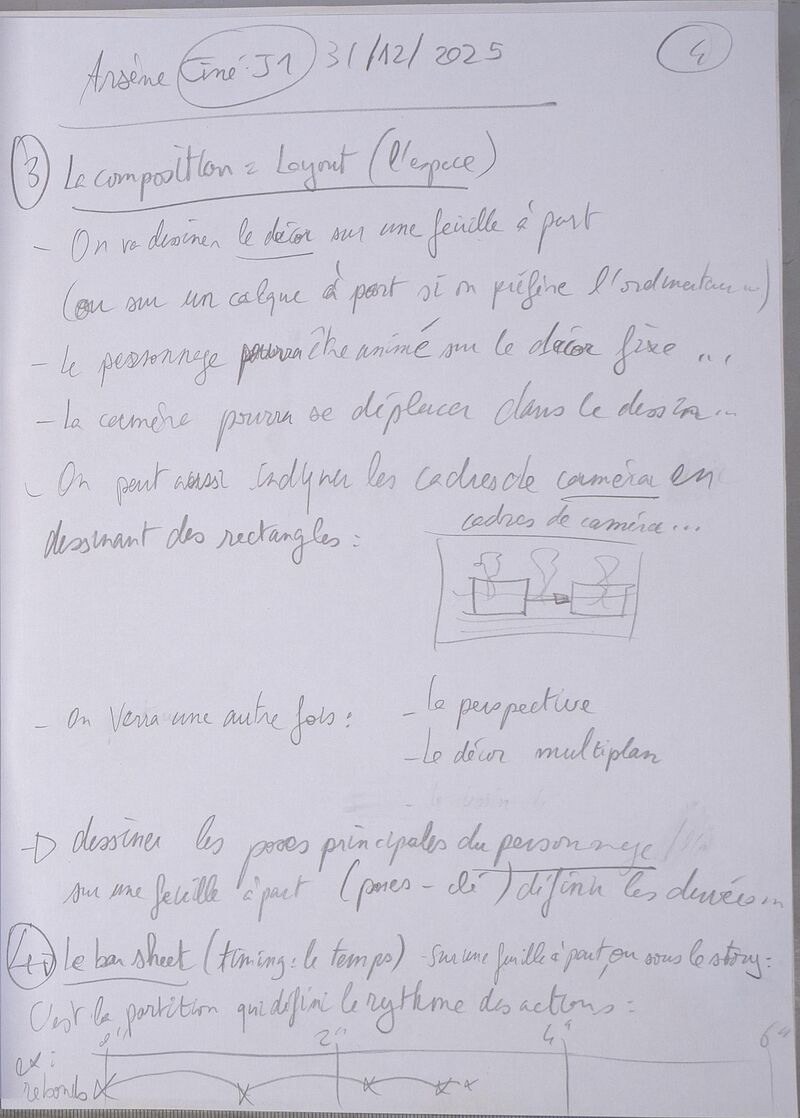 Arsène Ciné: J1 31/12/2025 4
3 La composition = Layout (l'espace)
- On va dessiner le décor sur une feuille à part
(ou sur un calque à part si on préfère l'ordinateur...)
- Le personnage pourra être animé sur le décor fixe ...
- La caméra pourra se déplacer dans le dessin...
- On peut aussi indiquer les cadres de caméra en
dessinant des rectangles :
cadres de caméra...
- On verra une autre fois : - La perspective
- Le décor multiplan
dessiner les poses principales du personnage
sur une feuille à part (poses-clé) définir les durées...
4 Le bar sheet (timing: le temps) - sur une feuille à part, ou sous le story:
C'est la partition qui défini le rythme des actions :
0" 2" 4" 6"
ex:
rebonds